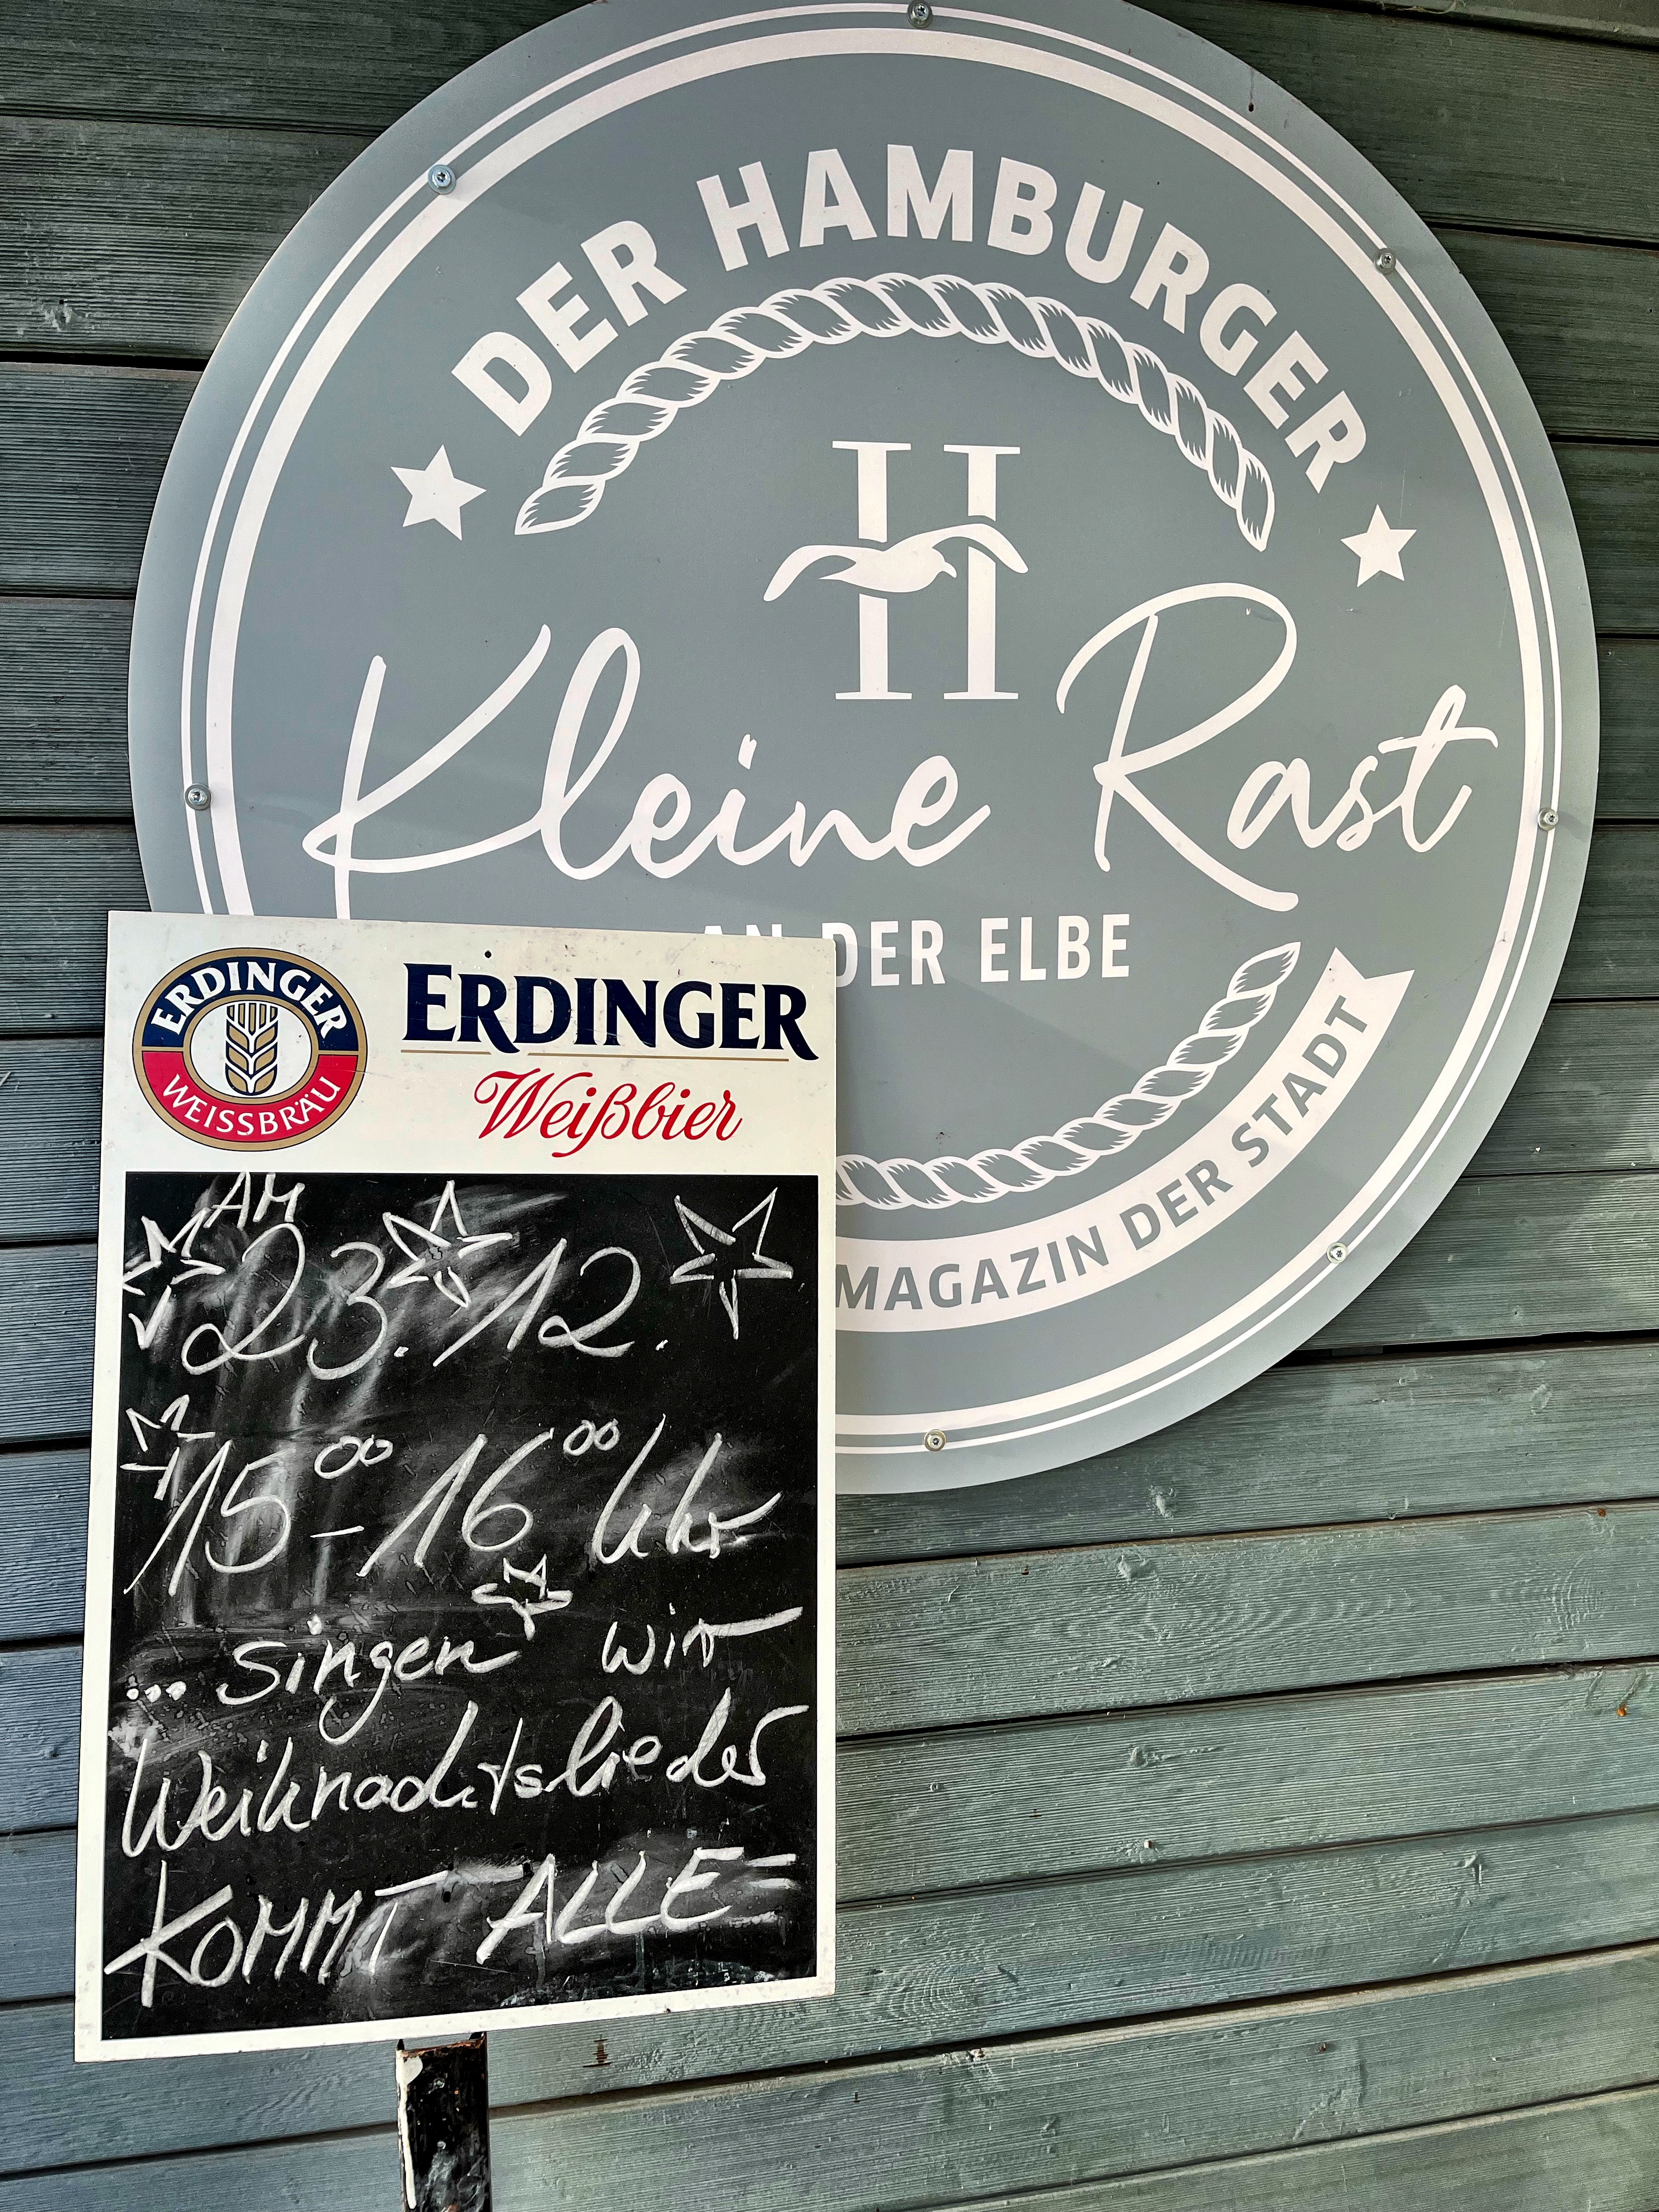 DER HAMBURGER
H
Kleine Rast
AN DER ELBE
MAGAZIN DER STADT
ERDINGER
WEISSBRÄU
ERDINGER
Weißbier
AM
23. 12.
15⁰⁰ - 16⁰⁰ Uhr
... singen wir
Weihnachtslieder
KOMMT ALLE